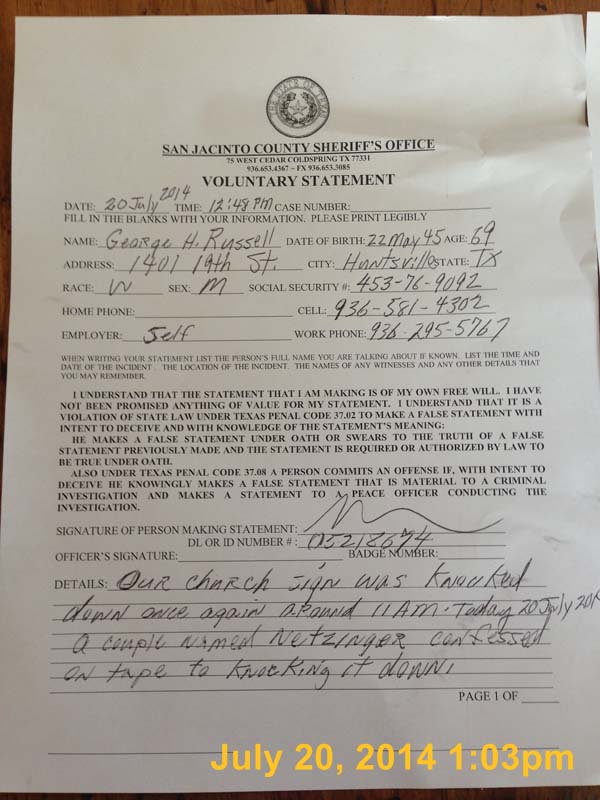 THE STATE OF TEXAS
SAN JACINTO COUNTY SHERIFF'S OFFICE
75 WEST CEDAR COLDSPRING TX 77331
936.653.4367 ~ FX 936.653.3085
VOLUNTARY STATEMENT
DATE: 20 July 2014 TIME: 12:48 PM CASE NUMBER:
FILL IN THE BLANKS WITH YOUR INFORMATION. PLEASE PRINT LEGIBLY
NAME: George H. Russell DATE OF BIRTH: 22 May 45 AGE: 69
ADDRESS: 1401 19th St. CITY: Huntsville STATE: TX
RACE: W SEX: M SOCIAL SECURITY #: 453-76-9092
HOME PHONE: CELL: 936-581-4302
EMPLOYER: Self WORK PHONE: 936-295-5767
WHEN WRITING YOUR STATEMENT LIST THE PERSON'S FULL NAME YOU ARE TALKING ABOUT IF KNOWN. LIST THE TIME AND
DATE OF THE INCIDENT. THE LOCATION OF THE INCIDENT. THE NAMES OF ANY WITNESSES AND ANY OTHER DETAILS THAT
YOU MAY REMEMBER.
I UNDERSTAND THAT THE STATEMENT THAT I AM MAKING IS OF MY OWN FREE WILL. I HAVE
NOT BEEN PROMISED ANYTHING OF VALUE FOR MY STATEMENT. I UNDERSTAND THAT IT IS A
VIOLATION OF STATE LAW UNDER TEXAS PENAL CODE 37.02 TO MAKE A FALSE STATEMENT WITH
INTENT TO DECEIVE AND WITH KNOWLEDGE OF THE STATEMENT'S MEANING:
HE MAKES A FALSE STATEMENT UNDER OATH OR SWEARS TO THE TRUTH OF A FALSE
STATEMENT PREVIOUSLY MADE AND THE STATEMENT IS REQUIRED OR AUTHORIZED BY LAW TO
BE TRUE UNDER OATH.
ALSO UNDER TEXAS PENAL CODE 37.08 A PERSON COMMITS AN OFFENSE IF, WITH INTENT TO
DECEIVE HE KNOWINGLY MAKES A FALSE STATEMENT THAT IS MATERIAL TO A CRIMINAL
INVESTIGATION AND MAKES A STATEMENT TO A PEACE OFFICER CONDUCTING THE
INVESTIGATION.
SIGNATURE OF PERSON MAKING STATEMENT:
DL OR ID NUMBER #: 05218674
OFFICER'S SIGNATURE: BADGE NUMBER:
DETAILS: Our church sign was knocked
down once again around 11 AM. Today 20 July
a couple named Netzinger confessed
on tape to knocking it down.
PAGE 1 OF
July 20, 2014 1:03pm